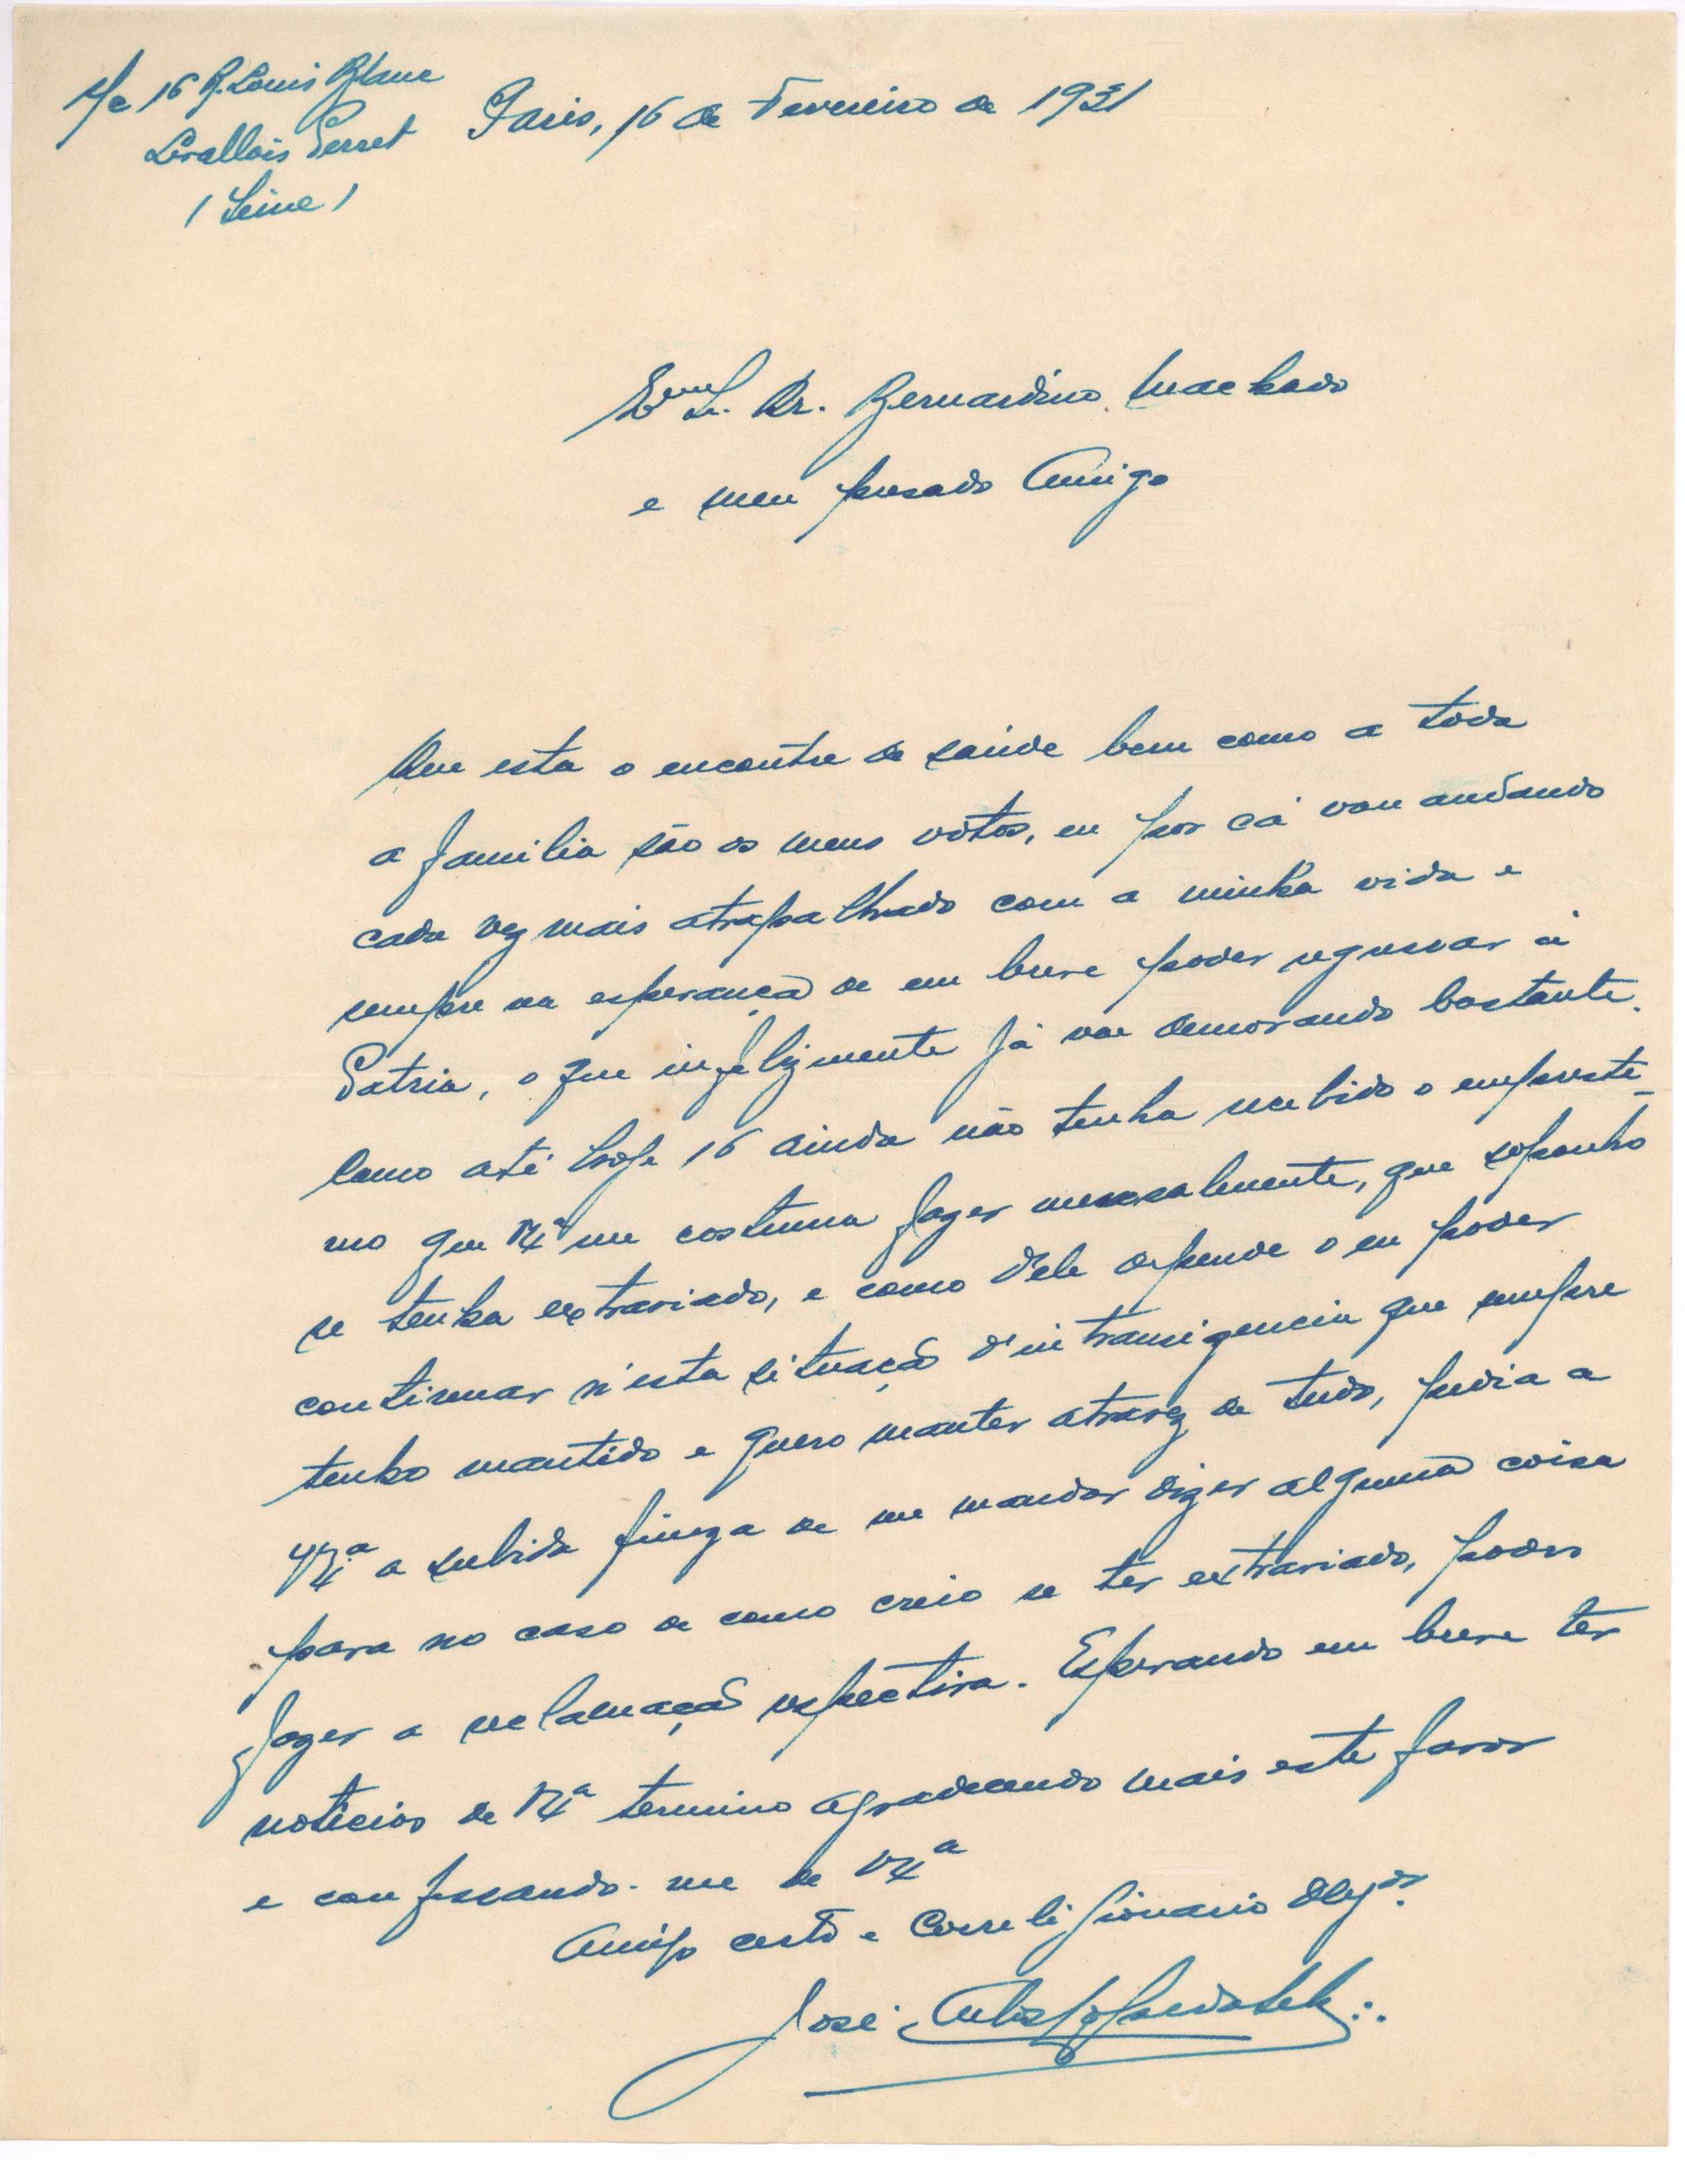 S/c 16 R. Louis Blanc
Levallois Perret
(Seine)
Paris, 16 de Fevereiro de 1931
Exmo Sr. Dr. Bernardino Machado
e meu presado Amigo
Que esta o encontre de saúde bem como a toda
a familia são os meus vótos, eu por cá vou andando
cada vez mais atrapalhado com a minha vida e
sempre na esperança de em breve poder regressar á
Patria, o que infelizmente já vae demorando bastante.
Como até hoje 16 ainda não tenha recebido o empresti-
mo que V. Ex.ª me costuma fazer mensalmente, que suponho
se tenha extraviado, e como d'ele depende o eu poder
continuar n'esta situação d'intransigencia que sempre
tenho mantido e quero manter atravez de tudo, pedia a
V. Ex.ª a subida fineza de me mandar dizer alguma coisa
para no caso de como creio se ter extraviado, poder
fazer a reclamação respectiva. Esperando em breve ter
noticias de V. Ex.ª termino agradecendo mais este favor
e confessando-me de V. Ex.ª
Amigo certo e Correligionario Obgdo.
José